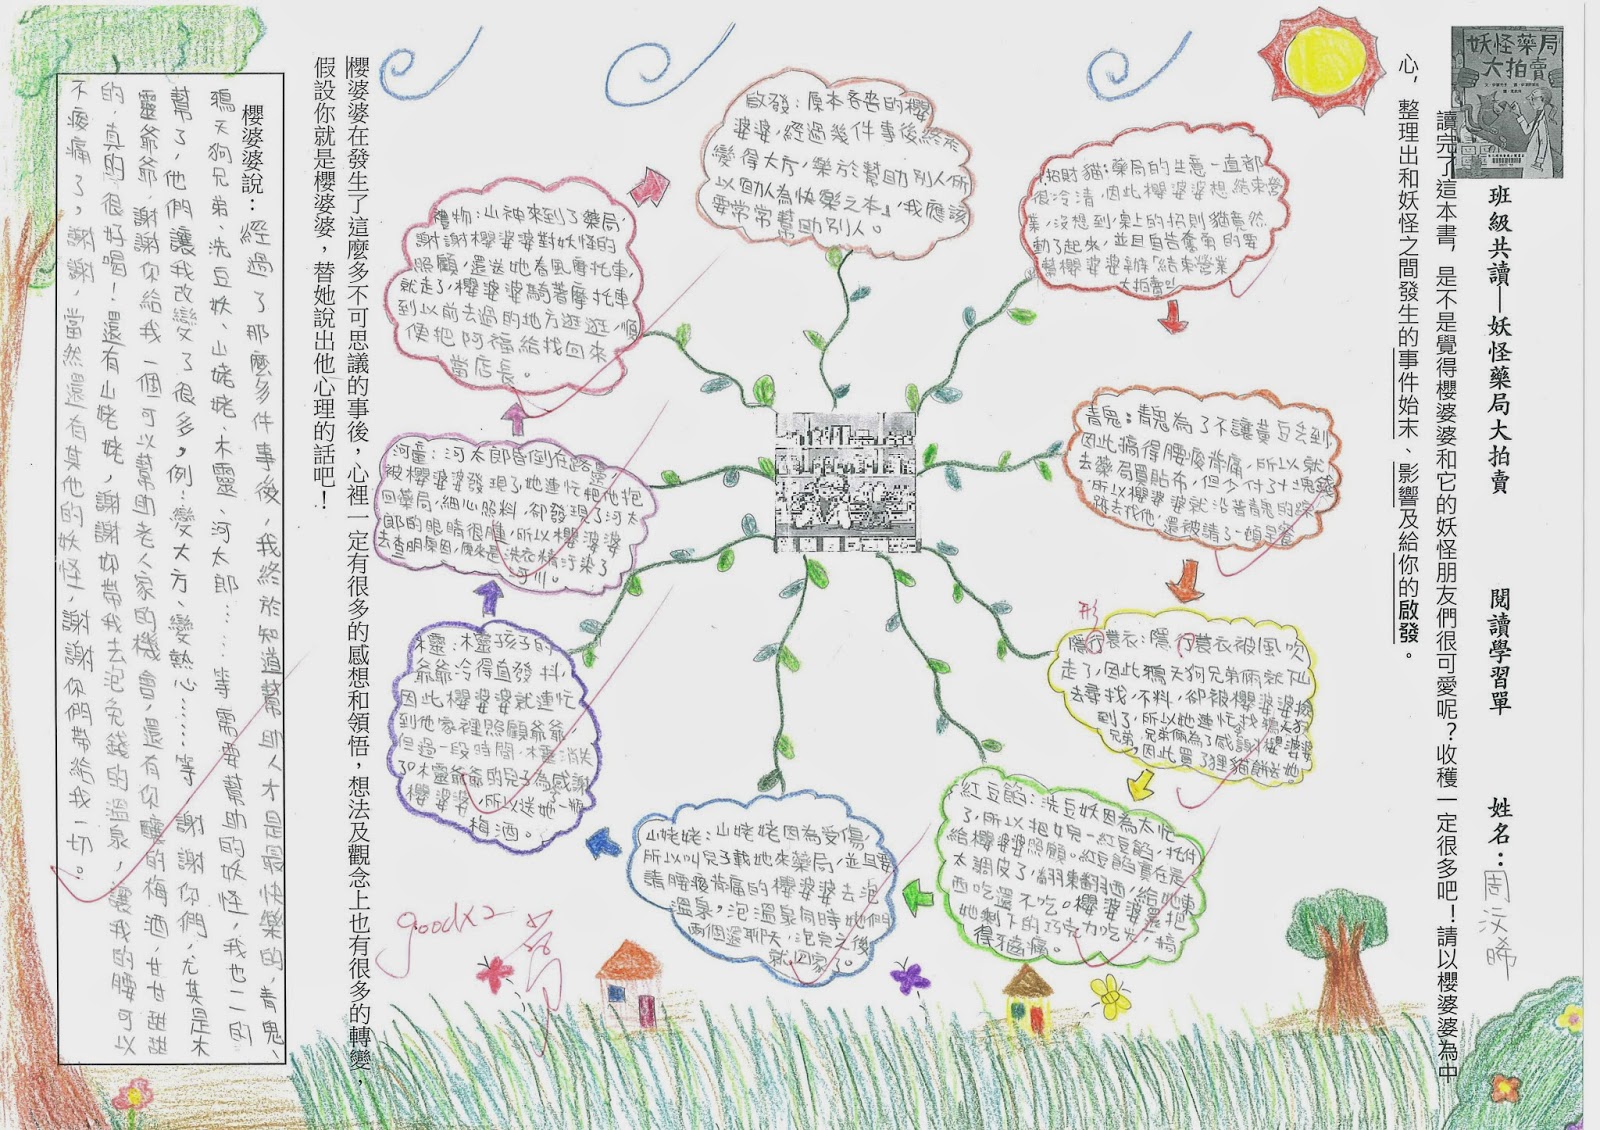 妖怪藥局
大拍賣
班級共讀—妖怪藥局大拍賣 閱讀學習單 姓名：周汶晞
讀完了這本書，是不是覺得櫻婆婆和它的妖怪朋友們很可愛呢？收穫一定很多吧！請以櫻婆婆為中
心，整理出和妖怪之間發生的事件始末、影響及給你的啟發。
招財貓：藥局的生意一直都
很冷清，因此櫻婆婆想結束營
業，沒想到桌上的招財貓竟然
動了起來，並且自告奮勇的要
幫櫻婆婆辦「結束營業
大拍賣」!
青鬼：青鬼為了不讓黃豆去到，
因此搞得腰痠背痛，所以就
去藥局買貼布，但少付了十塊錢
所以櫻婆婆就沿著青鬼的
去找他，還被請了一頓早餐
形
隱行蓑衣：隱行蓑衣被風吹
走了，因此鴉天狗兄弟倆就下山
去尋找，不料，卻被櫻婆婆撿
到了，所以她連忙找鴉天狗
兄弟，兄弟倆為了感謝櫻婆婆
，因此買了狸貓餅送她。
紅豆餡：洗豆妖因為太忙
了，所以把女兒—紅豆餡，托付
給櫻婆婆照顧。紅豆餡實在是
太調皮了，翻東翻西，給她東
西吃還不吃。櫻婆婆還把
她剩下的巧克力吃光，搞
得牙齒痛。
山姥姥：山姥姥因為受傷，
所以叫兒子載她來藥局，並且要
請腰痠背痛的櫻婆婆去泡
溫泉，泡溫泉同時她們
兩個還聊天，泡完之後
就回家了。
木靈：木靈孩子的
爺爺冷得直發抖，
因此櫻婆婆就連忙
到他家裡照顧爺爺，
但過一段時間，木靈消失
了。木靈爺爺的兒子為感謝
櫻婆婆，所以送她一瓶
梅酒。
河童：河太郎昏倒在路邊，
被櫻婆婆發現了，她連忙把他抱
回藥局，細心照料，卻發現了河太
郎的眼睛很腫，所以櫻婆婆
去查明原因，原來是洗衣精污染了
河川。
禮物：山神來到了藥局，
謝謝櫻婆婆對妖怪的
照顧，還送她春風摩托車，
就走了，櫻婆婆騎著摩托車
到以前去過的地方逛逛，順
便把阿福給找回來
當店長。
啟發：原本吝嗇的櫻
婆婆，經過幾件事後終於
變得大方，樂於幫助別人，所
以「助人為快樂之本」，我應該
要常常幫助別人。
goodx2
櫻婆婆在發生了這麼多不可思議的事後，心裡一定有很多的感想和領悟，想法及觀念上也有很多的轉變，
假設你就是櫻婆婆，替她說出他心理的話吧！
櫻婆婆說：經過了那麼多件事後，我終於知道幫助人才是最快樂的，青鬼、
鴉天狗兄弟、洗豆妖、山姥姥、木靈、河太郎……等需要幫助的妖怪，我也一一的
幫了，他們讓我改變了很多，例：變大方、變熱心……等，謝謝你們，尤其是木
靈爺爺，謝謝你給我一個可以幫助老人家的機會，還有你釀的梅酒，甘甘甜甜
的，真的很好喝！還有山姥姥，謝謝妳帶我去泡免錢的溫泉，讓我的腰可以
不痠痛了，謝謝，當然還有其他的妖怪，謝謝你們帶給我一切。